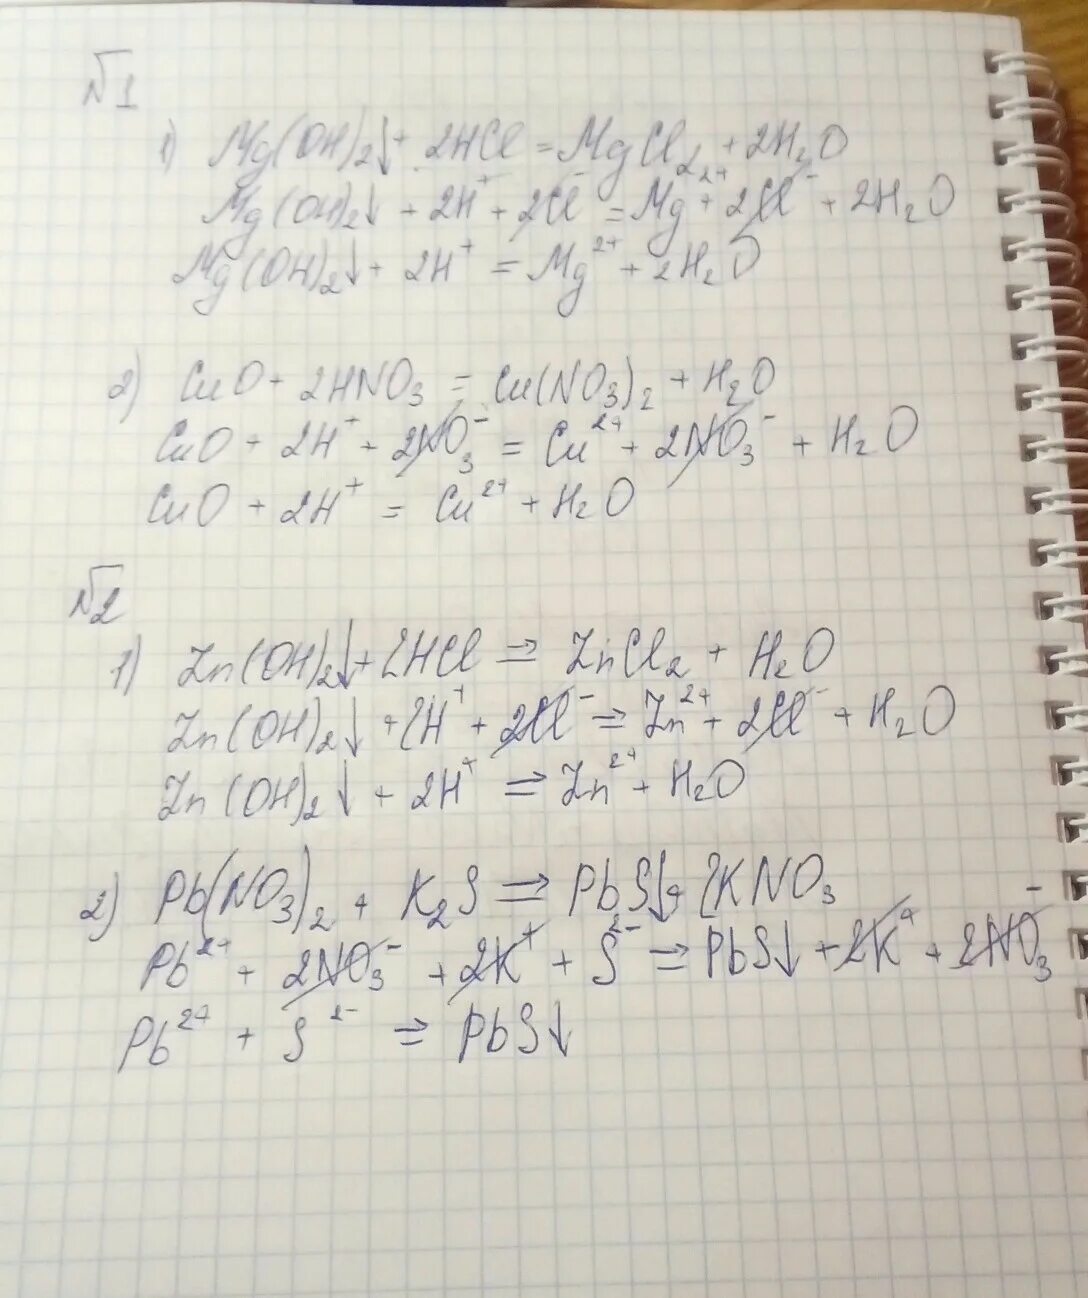 №1
1) Mg(OH)₂↓ + 2HCl = MgCl₂ + 2H₂O
Mg(OH)₂↓ + 2H⁺ + 2Cl⁻ = Mg²⁺ + 2Cl⁻ + 2H₂O
Mg(OH)₂↓ + 2H⁺ = Mg²⁺ + 2H₂O
2) CuO + 2HNO₃ = Cu(NO₃)₂ + H₂O
CuO + 2H⁺ + 2NO₃⁻ = Cu²⁺ + 2NO₃⁻ + H₂O
CuO + 2H⁺ = Cu²⁺ + H₂O
№2
1) Zn(OH)₂↓ + 2HCl => ZnCl₂ + H₂O
Zn(OH)₂↓ + 2H⁺ + 2Cl⁻ => Zn²⁺ + 2Cl⁻ + H₂O
Zn(OH)₂↓ + 2H⁺ => Zn²⁺ + H₂O
2) Pb(NO₃)₂ + K₂S => PbS↓ + 2KNO₃
Pb²⁺ + 2NO₃⁻ + 2K⁺ + S²⁻ => PbS↓ + 2K⁺ + 2NO₃⁻
Pb²⁺ + S²⁻ => PbS↓